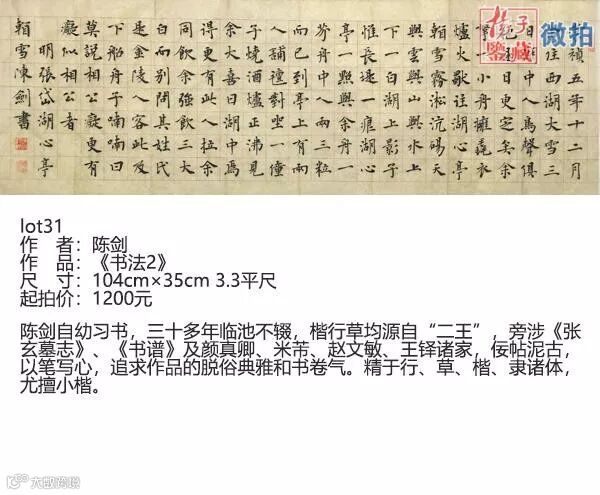 禎五年十二月
住西湖大雪三
日湖中人鳥聲俱
是日更定矣余
一小舟擁毳衣
爐火獨往湖心亭
看雪霧淞沆碭天
與雲與山與水上
下一白湖上影子
惟長堤一痕湖心
亭一點與余舟一
芥舟中人兩三粒
而已到亭上有兩
人鋪氈對坐一童
子燒酒爐正沸見
余大喜曰湖中焉
得更有此人拉余
同飲余強飲三大
白而別問其姓氏
是金陵人客此及
下船舟子喃喃曰
莫說相公癡更有
癡似相公者
明張岱湖心亭
看雪陳劍書
鉴藏
微拍
lot31
作 者：陈剑
作 品：《书法2》
尺 寸：104cm×35cm 3.3平尺
起拍价：1200元
陈剑自幼习书，三十多年临池不辍，楷行草均源自“二王”，旁涉《张
玄墓志》、《书谱》及颜真卿、米芾、赵文敏、王铎诸家，佞帖泥古，
以笔写心，追求作品的脱俗典雅和书卷气。精于行、草、楷、隶诸体，
尤擅小楷。
大歐跨境